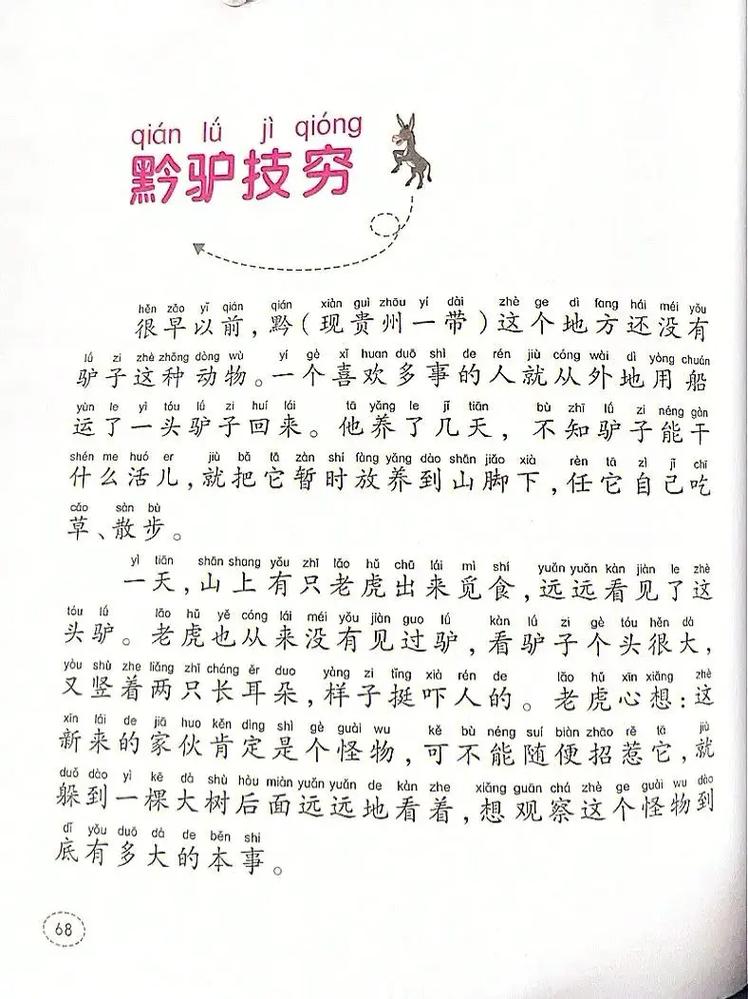 qián lǘ jì qióng
黔驴技穷
hěn zǎo yǐ qián qián xiàn guì zhōu yí dài zhè ge dì fang hái méi yǒu
很早以前,黔(现贵州一带)这个地方还没有
lǘ zi zhè zhǒng dòng wù yí gè xǐ huan duō shì de rén jiù cóng wài dì yòng chuán
驴子这种动物。一个喜欢多事的人就从外地用船
yùn le yì tóu lǘ zi huí lái tā yǎng le jǐ tiān bù zhī lǘ zi néng gàn
运了一头驴子回来。他养了几天,不知驴子能干
shén me huó er jiù bǎ tā zàn shí fàng yǎng dào shān jiǎo xià rèn tā zì jǐ chī
什么活儿,就把它暂时放养到山脚下,任它自己吃
cǎo sàn bù
草、散步。
yì tiān shān shang yǒu zhī lǎo hǔ chū lái mì shí yuǎn yuǎn kàn jiàn le zhè
一天,山上有只老虎出来觅食,远远看见了这
tóu lǘ lǎo hǔ yě cóng lái méi yǒu jiàn guo lǘ kàn lǘ zi gè tóu hěn dà
头驴。老虎也从来没有见过驴,看驴子个头很大,
yòu shù zhe liǎng zhī cháng ěr duo yàng zi tǐng xià rén de lǎo hǔ xīn xiǎng zhè
又竖着两只长耳朵,样子挺吓人的。老虎心想:这
xīn lái de jiā huo kěn dìng shì gè guài wu kě bù néng suí biàn zhāo rě tā jiù
新来的家伙肯定是个怪物,可不能随便招惹它,就
duǒ dào yì kē dà shù hòu miàn yuǎn yuǎn de kàn zhe xiǎng guān chá zhè ge guài wu dào
躲到一棵大树后面远远地看着,想观察这个怪物到
dǐ yǒu duō dà de běn shi
底有多大的本事。
68